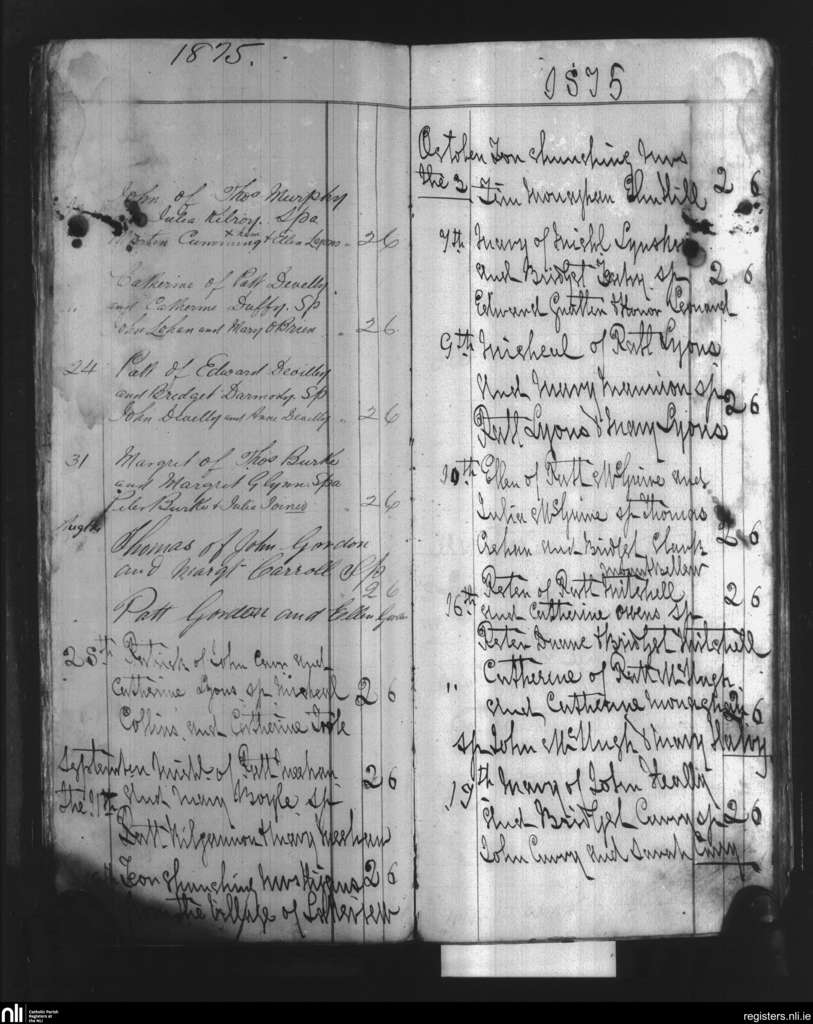 1875.
John of Thos Murphy
Julia Kilroy. Spa
Martin Cummings & Ellen Lyons 2 6
Catherine of Patt Develly
and Catherine Duffy. Sp
John Lohan and Mary O'Brien 2 6
24 Patt of Edward Devilly
and Bredget Darmody. Sp
John Develly and Anne Devilly 2 6
31 Margret of Thos Burke
and Margret Glynn. Spa
Peter Burke & Julia Joines 2 6
August
Thomas of John Gordon
and Margt Carroll Sp
2 6
Patt Gordon and Ellen
25th Patrick of John and
Catherine Lyons sp Micheul 2 6
Collins and Catherine Toole
September Michl of Patt Meehan 2 6
the 11th And Mary Boyle sp
Patt Kilgannon & Mary Meehan
Mrs 2 6
from the village of
1875
October For Churching Mrs
the 3 Tim Monaghan 2 6
7th Mary of Michl Lynskey
and Bridget sp 2 6
Edward & Honor Leonard
9th Micheul of Patt Lyons
And Mary Mannion sp 2 6
Patt Lyons & Mary Lyons
10th Ellen of Patt McGuire and
Julia McGuire sp Thomas
Crehan and Bridget 2 6
16th Peter of Patt Mitchell 2 6
and Catherine Owens Sp
Peter Duane & Bridget Mitchell
" Catherine of Patt McHugh
And Catherine Monaghan 2 6
sp John McHugh & Mary
19th Mary of John Healy
And Bridget Curry sp 2 6
John Curry and Sarah Curry
nli
Catholic Parish
Registers at
the NLI
registers.nli.ie